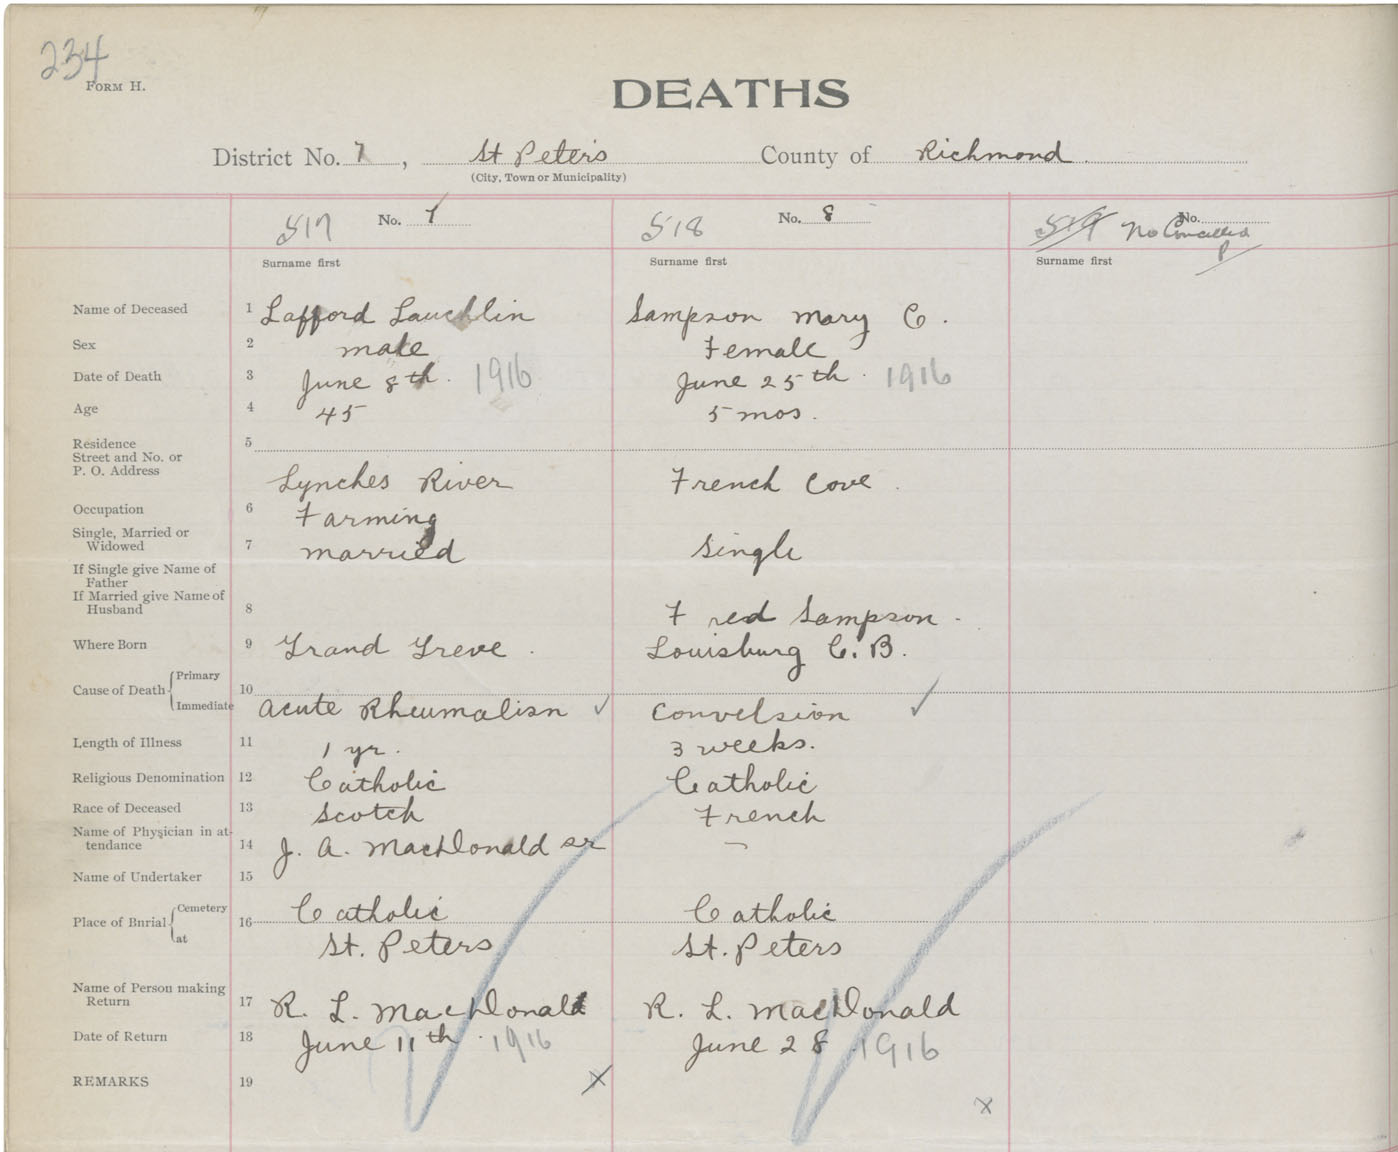 234
FORM H.
DEATHS
District No. 7, St Peter's County of Richmond
(City, Town or Municipality)
517 No. 7 518 No. 8 519 No Cancelled No.
P
Surname first Surname first Surname first
Name of Deceased 1 Lafford Lauchlin Sampson Mary C.
Sex 2 male Female
Date of Death 3 June 8th. 1916 June 25th. 1916
Age 4 45 5 mos.
Residence 5
Street and No. or
P. O. Address Lynches River French Cove.
Occupation 6 Farming
Single, Married or
Widowed 7 married Single
If Single give Name of
Father
If Married give Name of
Husband 8 Fred Sampson.
Where Born 9 Grand Greve. Louisburg C. B.
Cause of Death Primary 10
Immediate Acute Rheumatism ✓ Convelsion ✓
Length of Illness 11 1 yr. 3 weeks.
Religious Denomination 12 Catholic Catholic
Race of Deceased 13 Scotch French
Name of Physician in at-
tendance 14 J. A. MacDonald sr —
Name of Undertaker 15
Place of Burial Cemetery 16 Catholic Catholic
at St. Peters St. Peters
Name of Person making
Return 17 R. L. MacDonald R. L. MacDonald
Date of Return 18 June 11th. 1916 June 28. 1916
REMARKS 19 X X